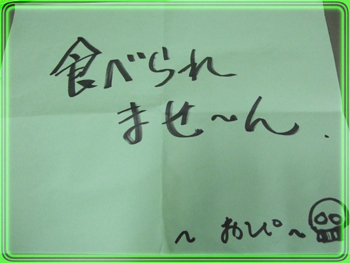 食べられ
ませ~ん.
~おぴ~